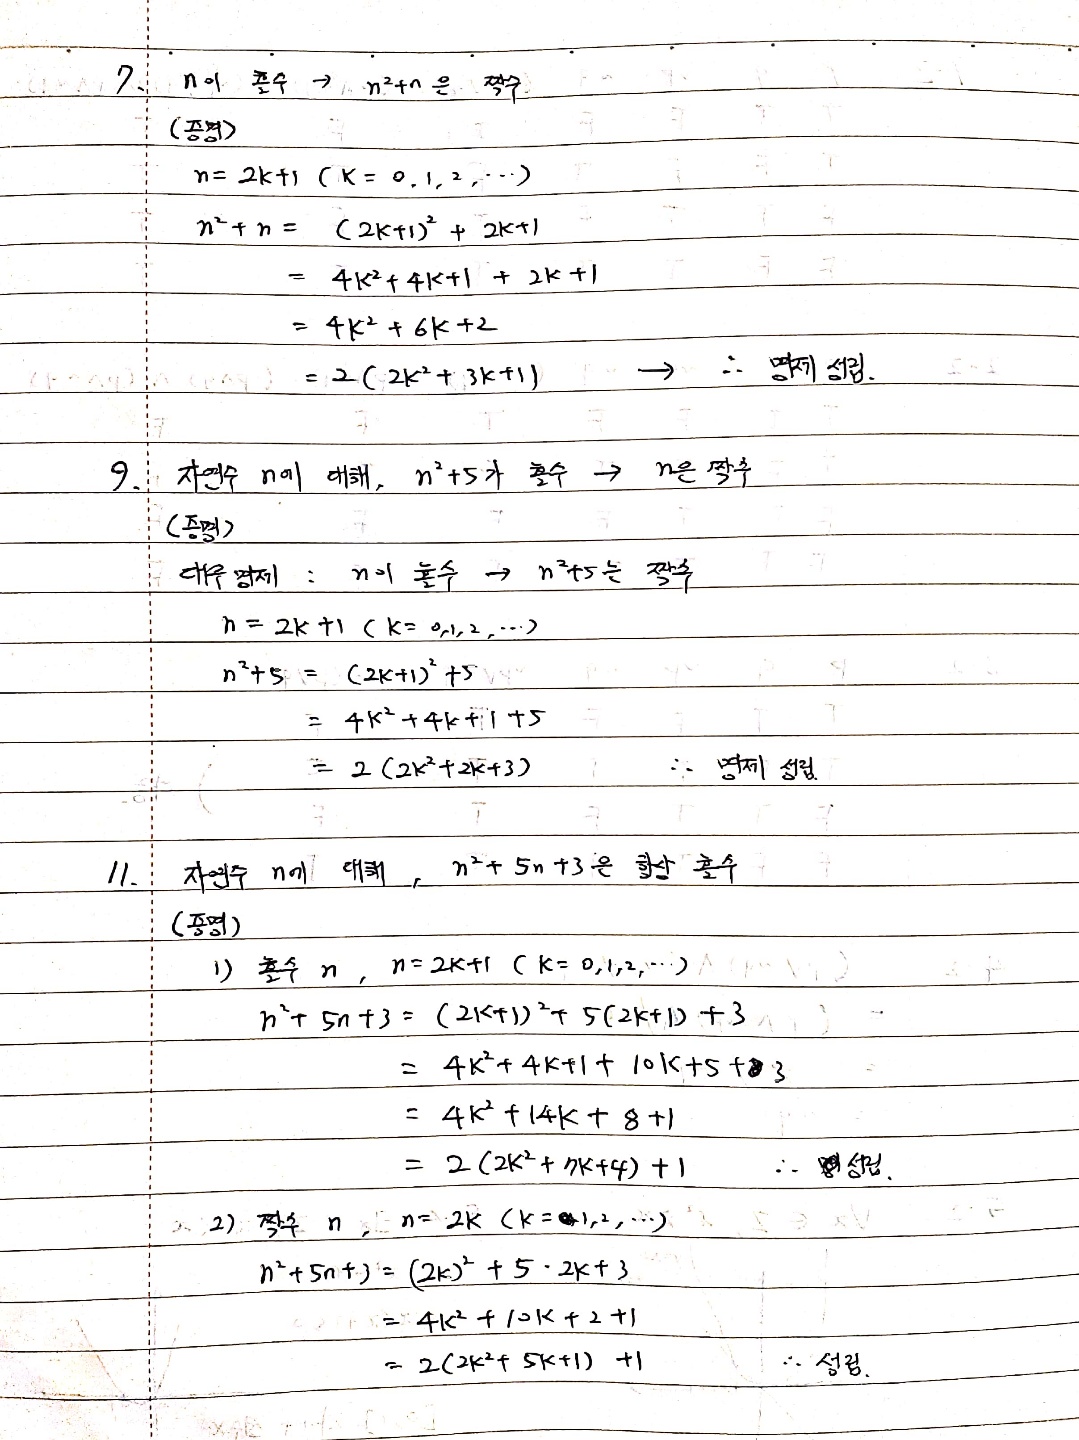 7. n이 홀수 → n²+n은 짝수
(증명)
n = 2k+1 (k = 0, 1, 2, ⋯)
n² + n = (2k+1)² + 2k+1
= 4k² + 4k+1 + 2k+1
= 4k² + 6k+2
= 2(2k² + 3k+1) → ∴ 명제 성립.
9. 자연수 n에 대해, n²+5가 홀수 → n은 짝수
(증명)
대우 명제 : n이 홀수 → n²+5는 짝수
n = 2k+1 (k = 0,1,2, ⋯)
n²+5 = (2k+1)² +5
= 4k² + 4k+1+5
= 2(2k²+2k+3) ∴ 명제 성립
11. 자연수 n에 대해, n² + 5n +3은 항상 홀수
(증명)
1) 홀수 n, n = 2k+1 (k = 0,1,2, ⋯)
n² + 5n +3 = (2k+1)² + 5(2k+1) +3
= 4k² + 4k+1 + 10k+5 + 3
= 4k² + 14k + 8 +1
= 2(2k² + 7k+4) +1 ∴ 성립.
2) 짝수 n, n = 2k (k = 1,2, ⋯)
n²+5n+3 = (2k)² + 5 · 2k+3
= 4k² + 10k + 2 +1
= 2(2k² + 5k+1) +1 ∴ 성립.